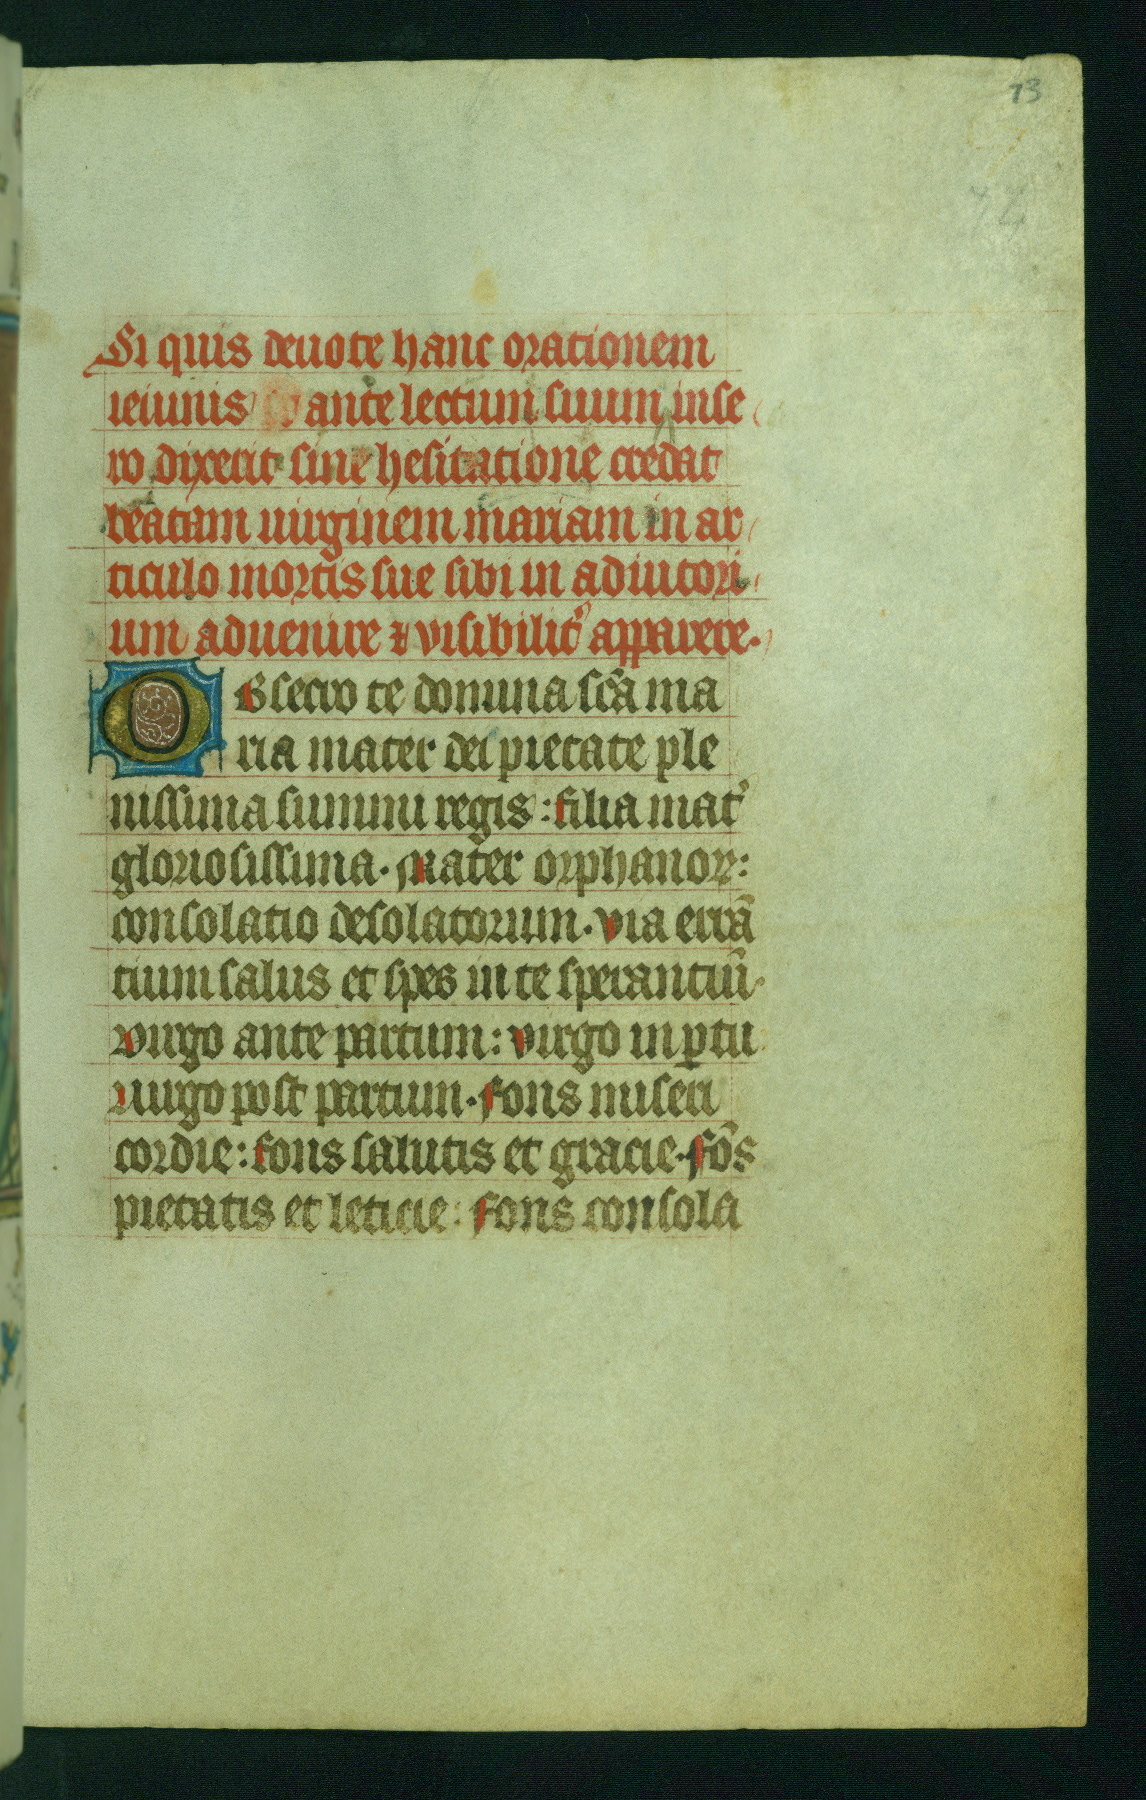 73
74
Si quis deuote hanc orationem
ieiunis ante lectum suum inse
ro dixerit sine hesitatione credat
beatam uirginem mariam in ar
ticulo mortis sue sibi in adiutori
um aduenire ⁊ visibilit᷑ apparere.
OBsecro te domina sc̄a ma
ria mater dei pietate ple
nissima summi regis: filia mat᷑
gloriosissima. Mater orphanoꝝ:
consolatio desolatorum. via errā
tium salus et spes in te sperantiū.
virgo ante partum: virgo in ꝑtu
uirgo post partum. fons miseri
cordie: fons salutis et gracie. fōs
pietatis et leticie: fons consola